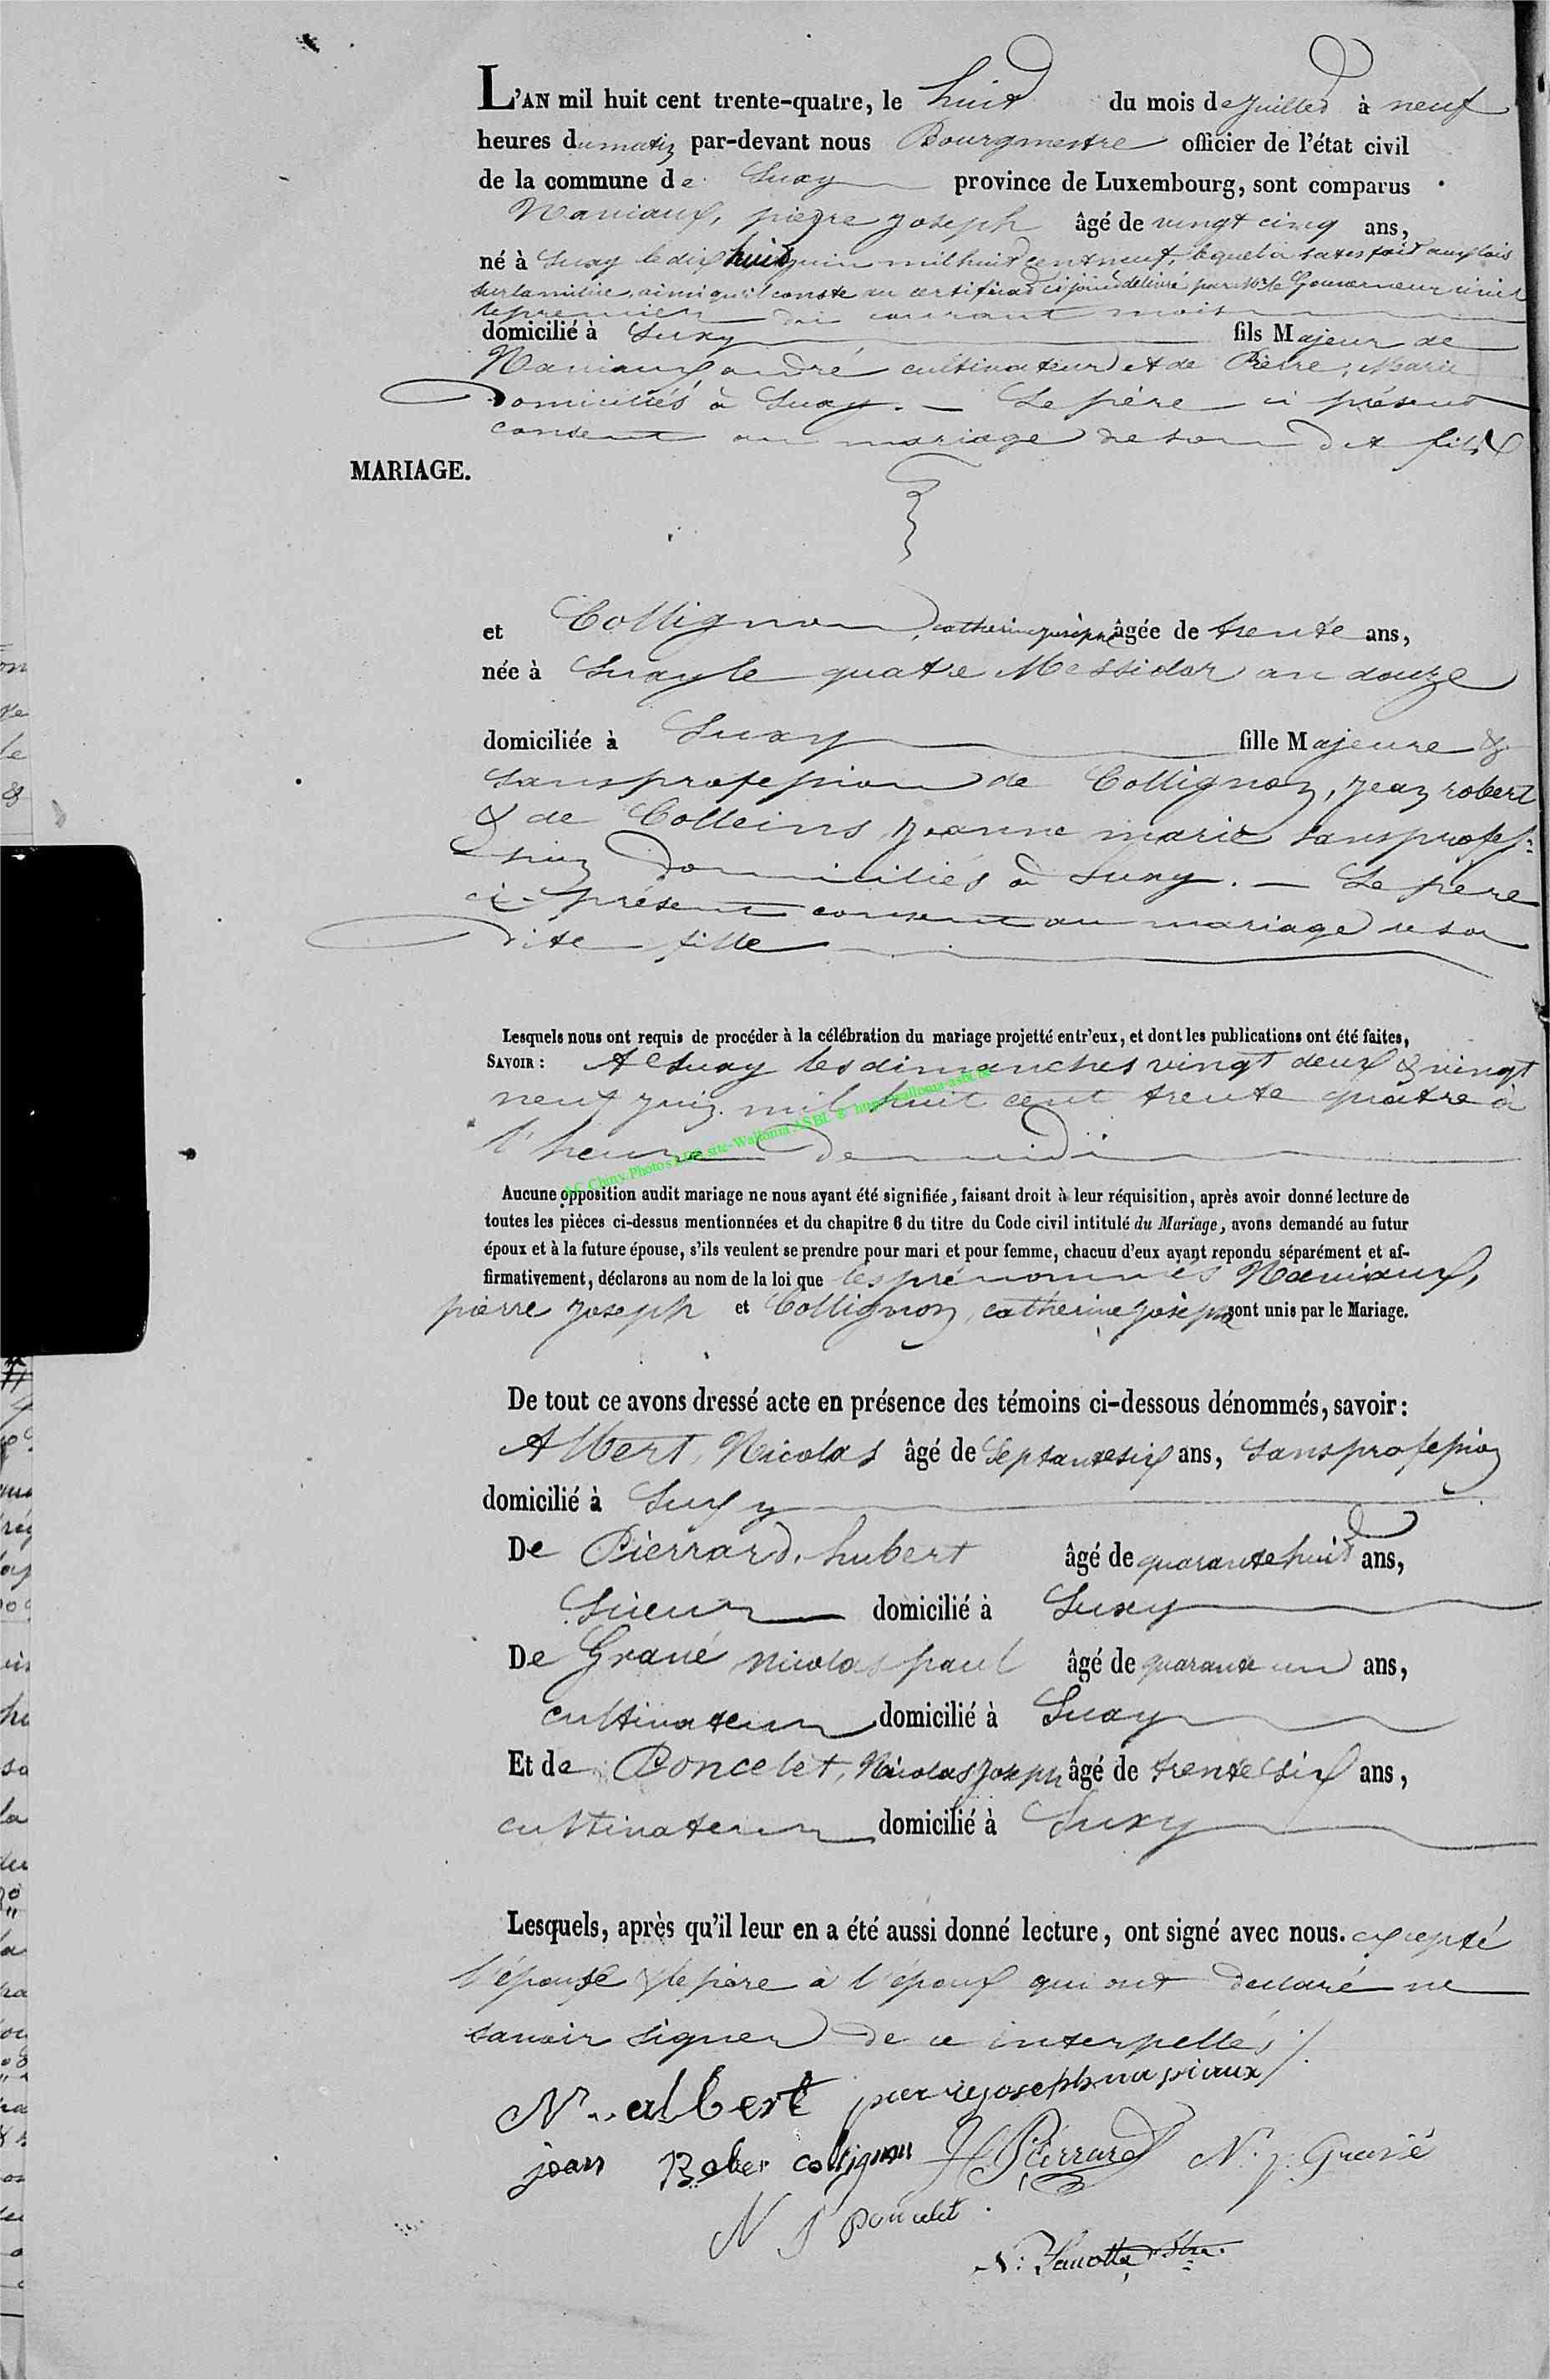 L'AN mil huit cent trente-quatre, le huit du mois de juillet à neuf
heures du matin par-devant nous Bourgmestre officier de l'état civil
de la commune de Suxy province de Luxembourg, sont comparus
Naviaux, pierre joseph âgé de vingt cinq ans,
né à Suxy le dix huit juin mil huit cent neuf, lequel a satisfait aux lois
sur la milice, ainsi qu'il conste au certificat ci joint délivré par Mr le Gouverneur civil
le premier du courant mois
domicilié à Suxy fils Majeur de
Naviaux andré cultivateur et de Pierre, Marie
Domiciliés à Suxy. — Le père ci présent
consent au mariage de son dit fils
MARIAGE.
et Collignon, catherine josèphe âgée de trente ans,
née à Suxy le quatre Messidor an douze
domiciliée à Suxy fille Majeure &
sans profession de Collignon, jean robert
& de Colleins jeanne marie sans profes=
sion Domiciliés à Suxy. — Le père
ci-présent consent au mariage de sa
dite fille
Lesquels nous ont requis de procéder à la célébration du mariage projetté entr'eux, et dont les publications ont été faites,
SAVOIR : A Suxy les dimanches vingt deux & vingt
neuf juin mil huit cent trente quatre à
l'heure de midi
Aucune opposition audit mariage ne nous ayant été signifiée, faisant droit à leur réquisition, après avoir donné lecture de
toutes les pièces ci-dessus mentionnées et du chapitre 6 du titre du Code civil intitulé du Mariage, avons demandé au futur
époux et à la future épouse, s'ils veulent se prendre pour mari et pour femme, chacun d'eux ayant repondu séparément et af-
firmativement, déclarons au nom de la loi que les prénommés Naviaux,
pierre joseph et Collignon, catherine josèphe sont unis par le Mariage.
De tout ce avons dressé acte en présence des témoins ci-dessous dénommés, savoir :
Albert, Nicolas âgé de Septante six ans, sans profession
domicilié à Suxy
De Pierrard, hubert âgé de quarante huit ans,
Scieur domicilié à Suxy
De Gravé nicolas paul âgé de quarante un ans,
cultivateur domicilié à Suxy
Et de Poncelet, Nicolas joseph âgé de trente six ans,
cultivateur domicilié à Suxy
Lesquels, après qu'il leur en a été aussi donné lecture, ont signé avec nous. excepté
l'épouse & le père à l'époux qui ont déclaré ne
savoir signer de ce interpellés ./.
N. albert pierre joseph naviaux
jean Rober collignon H Pierrard N. p. Gravé
N J Poncelet